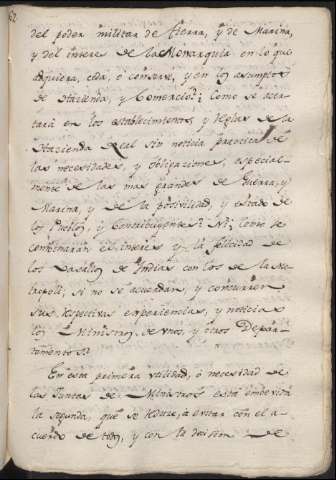 del poder militar de tierra, y de Marina,
y del interes de la Monarquia en lo que
adquiera, ceda, ó conserve, y en los asumptos
de Hacienda, y Comercio?; Como se acer-
tará en los establecimientos, y reglas de la
Hacienda Real sin noticia practica de
las necesidades, y obligaciones, especial-
mente de las mas grandes de Guerra, y
Marina, y de la posivilidad, y estado de
los Pueblos, y Contribuyentes? Ni; como se
combinarán el interes y la felicidad de
los Vasallos de Indias con los de la Me-
tropoli; si no se acuerdan, y concurren
sus respectivas experiencias, y noticias
los Ministros de unos, y otros Depar-
tamentos?
En esta primera utilidad, ó necesidad de
las Juntas de Ministros está embevida
la segunda, que se reduce, á evitar con el a-
cuerdo de todos, y con la decision de